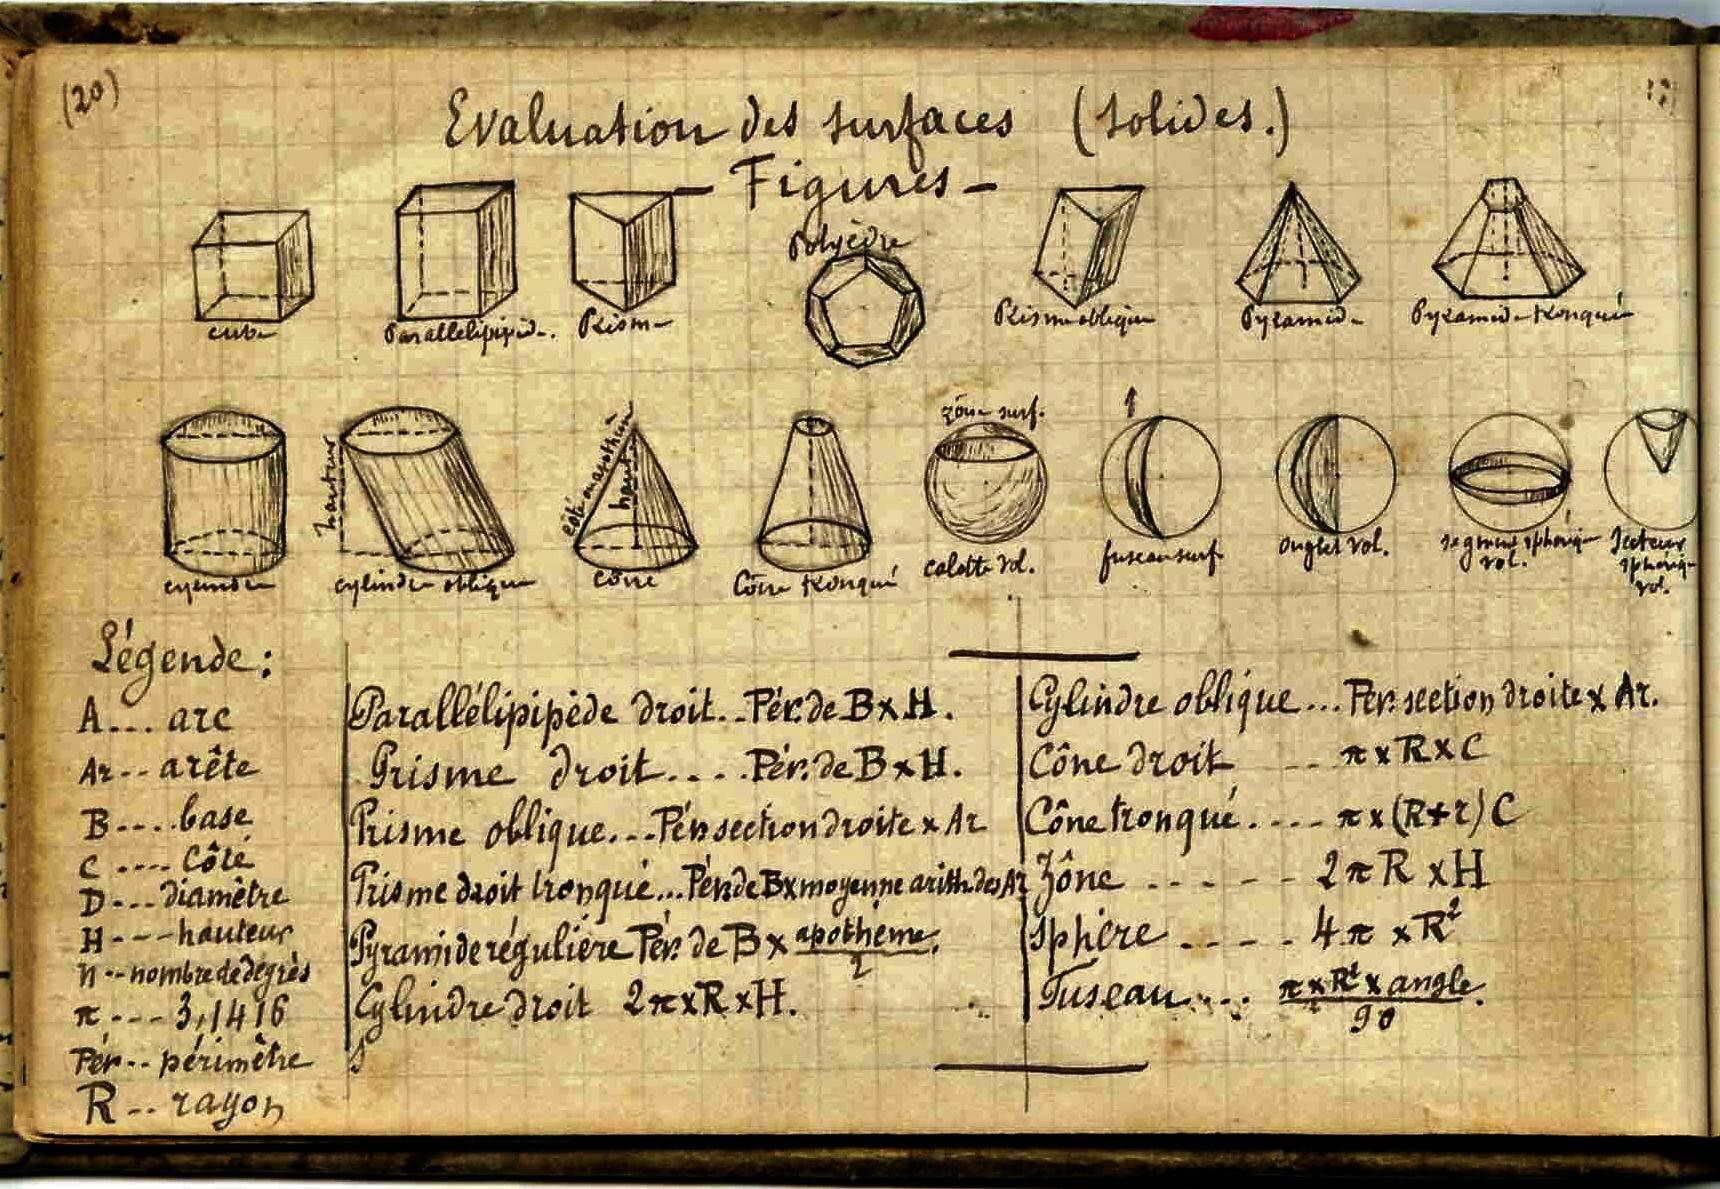 (20)
Evaluation des surfaces (solides.)
— Figures —
Polyèdre
cube Parallélipipède. Prisme Prisme oblique Pyramide Pyramide tronquée
zône surf.
hauteur
côté ou apothème
haut
cylindre cylindre oblique cône Cône tronqué calotte vol. fuseau surf onglet vol. segment sphérique vol. Secteur sphérique vol.
Légende :
A... arc
Ar-- arête
B....base
C .... Côté
D---diamêtre
H---hauteur
n--nombre de degrès
π--- 3,1416
Pér-- périmêtre
R -- rayon
Parallélipipède droit...Pér. de B x H.
Prisme droit.... Pér. de B x H.
Prisme oblique...Pér. section droite x Ar
Prisme droit tronqué...Pér. de B x moyenne arith. des Ar
Pyramide régulière Pér. de B x apothème.
2
Cylindre droit 2π x R x H.
S
Cylindre oblique... Pér. section droite x Ar.
Cône droit -- π x R x C
Cône tronqué.... π x (R + r) C
Zône ------ 2 π R x H
Sphère ---- 4 π x R²
Fuseau... π x R² x angle.
90